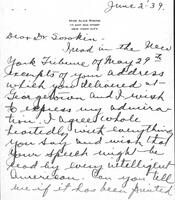 June 2-39.
MISS ALICE RHEINE
NEW YORK CITY
Dear Dr Sorokin-
I read in the New
York Tribune of May 29th
excerpts of your address
which you delivered in
Georgetown and I wish
to express my admira-
tion. I agree whole
heartedly with everything
you say and wish that
your speech might be
read by every intelligent
American. Can you tell
me if it has been printed